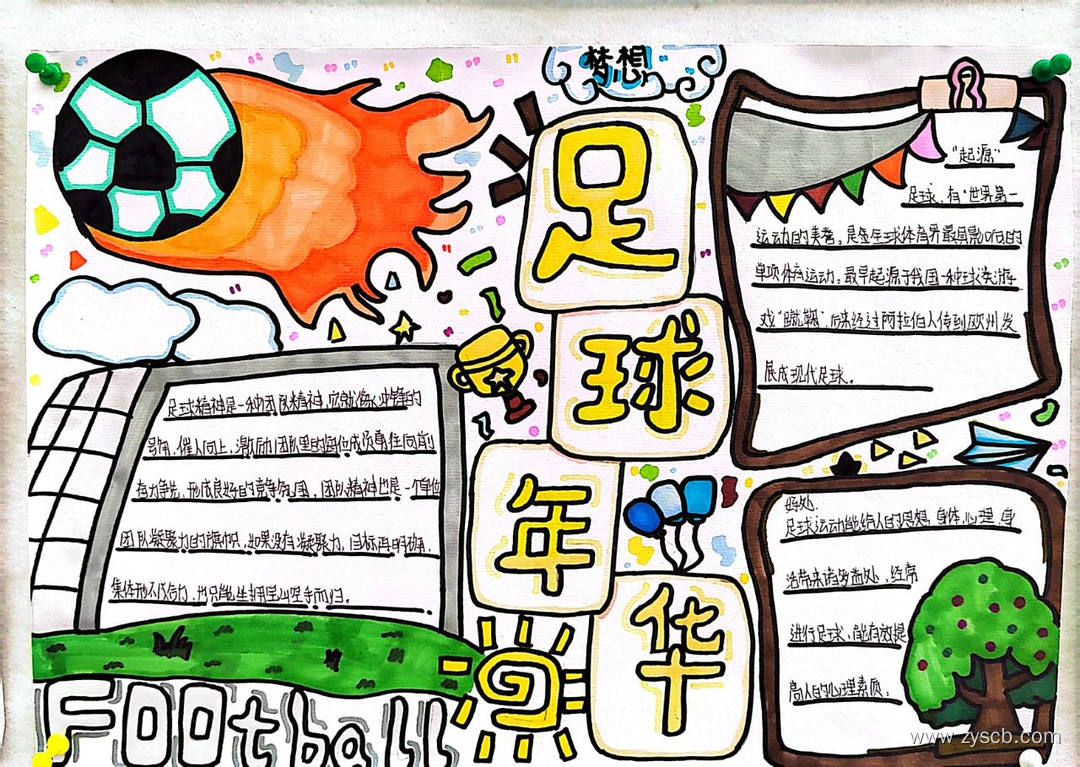 梦想
足
球
年
华
"起源"
足球,有"世界第一
运动的美誉,是全球体育界最具影响的
单项体育运动,最早起源于我国一种球类游
戏"蹴鞠"后来经过阿拉伯人传到欧州发
展成现代足球。
足球精神是一种团队精神,它就像心中的
号角,催人向上,激励团队里的每位成员勇往向前
奋力争先,形成良好的竞争氛围,团队精神也是一个单位
团队凝聚力的旗帜,如果没有凝聚力,目标再明确,
集体也只能
好处
足球运动能给人的思想,身体,心理,身
活带来诸多益处,经常
进行足球,能有效提
高人的心理素质。
FOOtball
www.zyscb.com